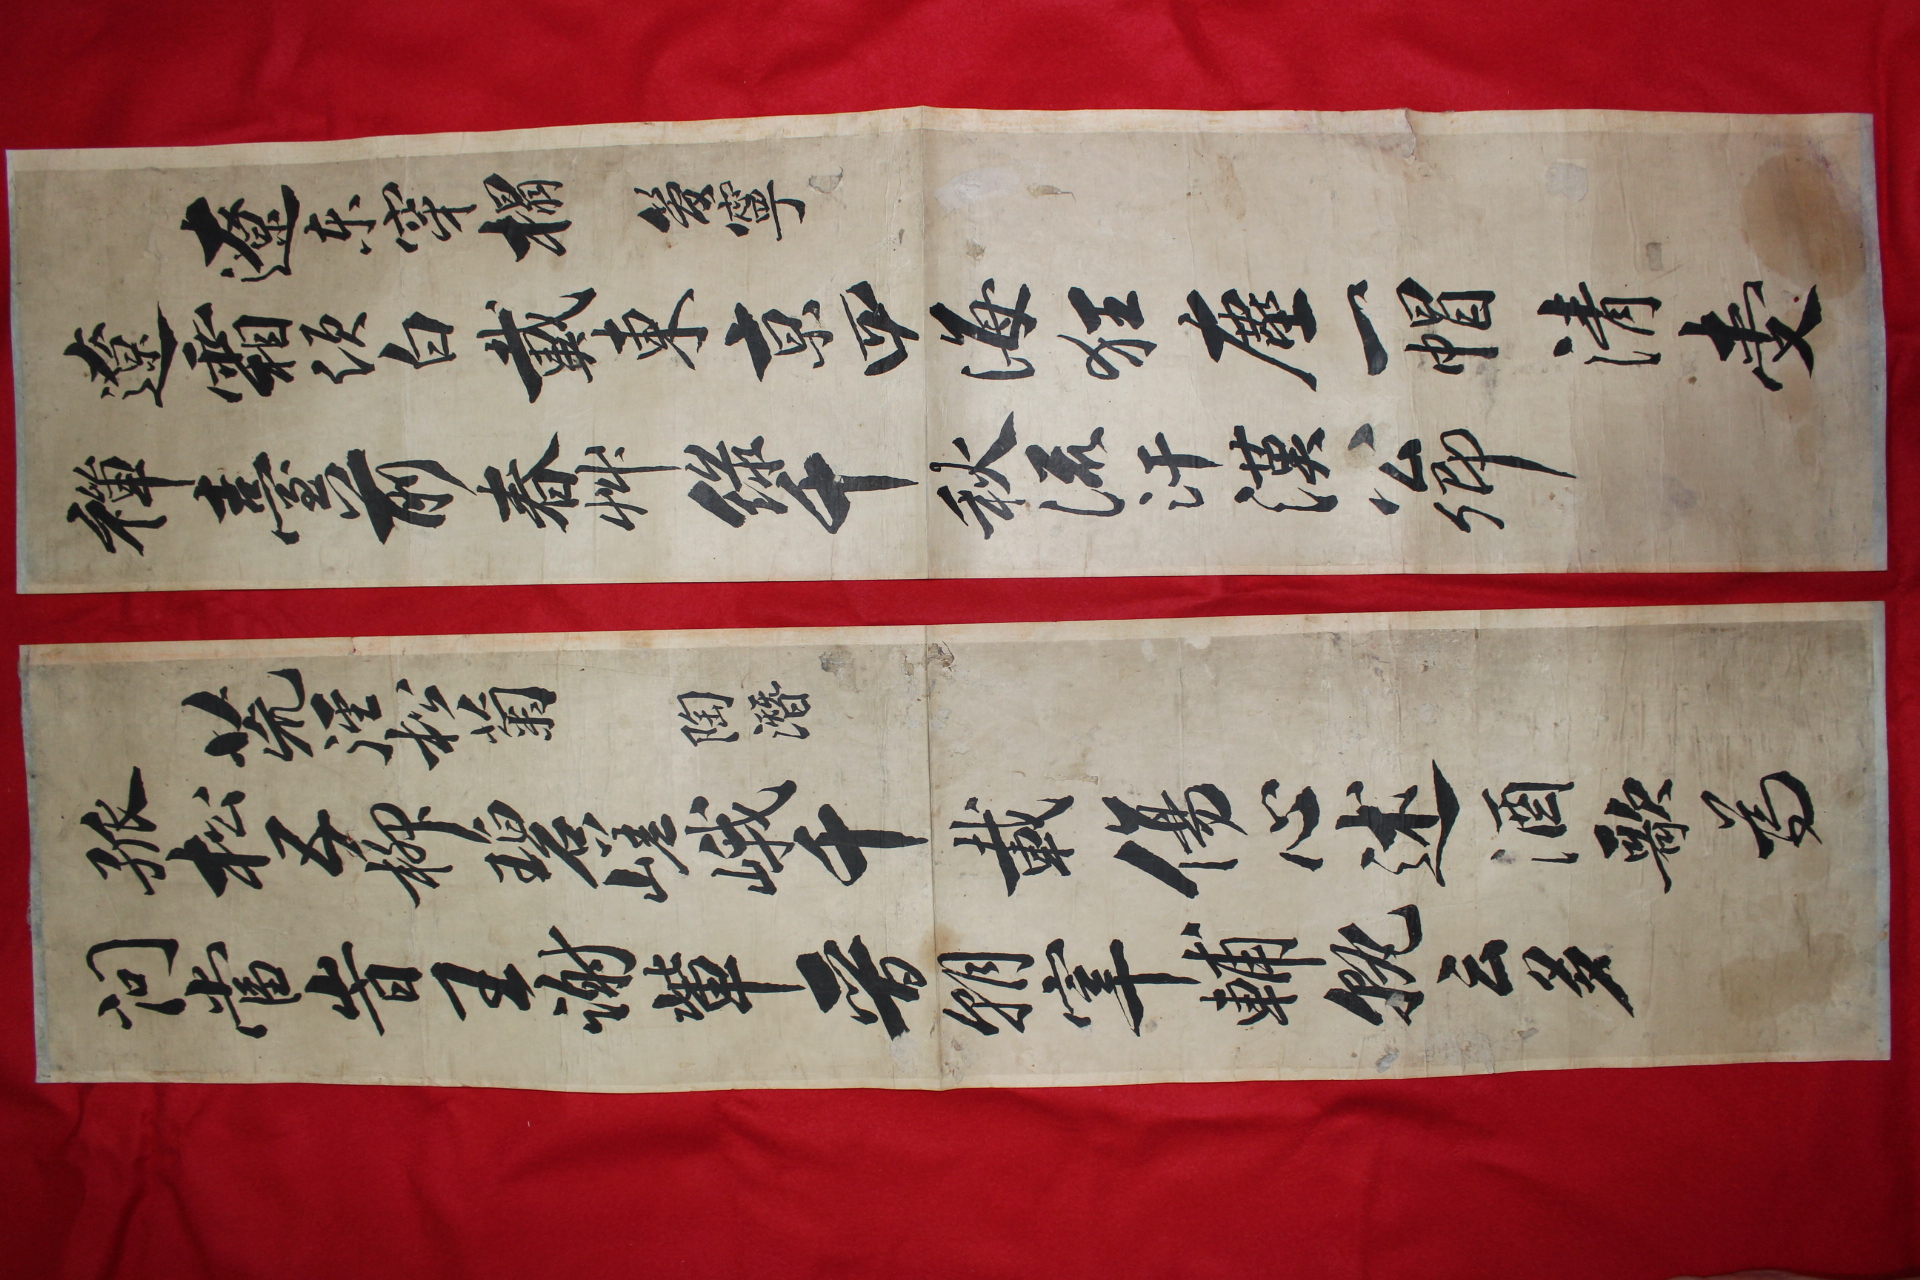 遼東穿榻 管寧
遼霜須白戴東京四海狂塵一帽清受
禪臺前春艸綠千秋流汗漢公卿
荒徑松菊 陶潛
孤松五柳碧嵯峨千載傷心述酒歌為
問當旹王謝輩晉朝宰輔孰云多